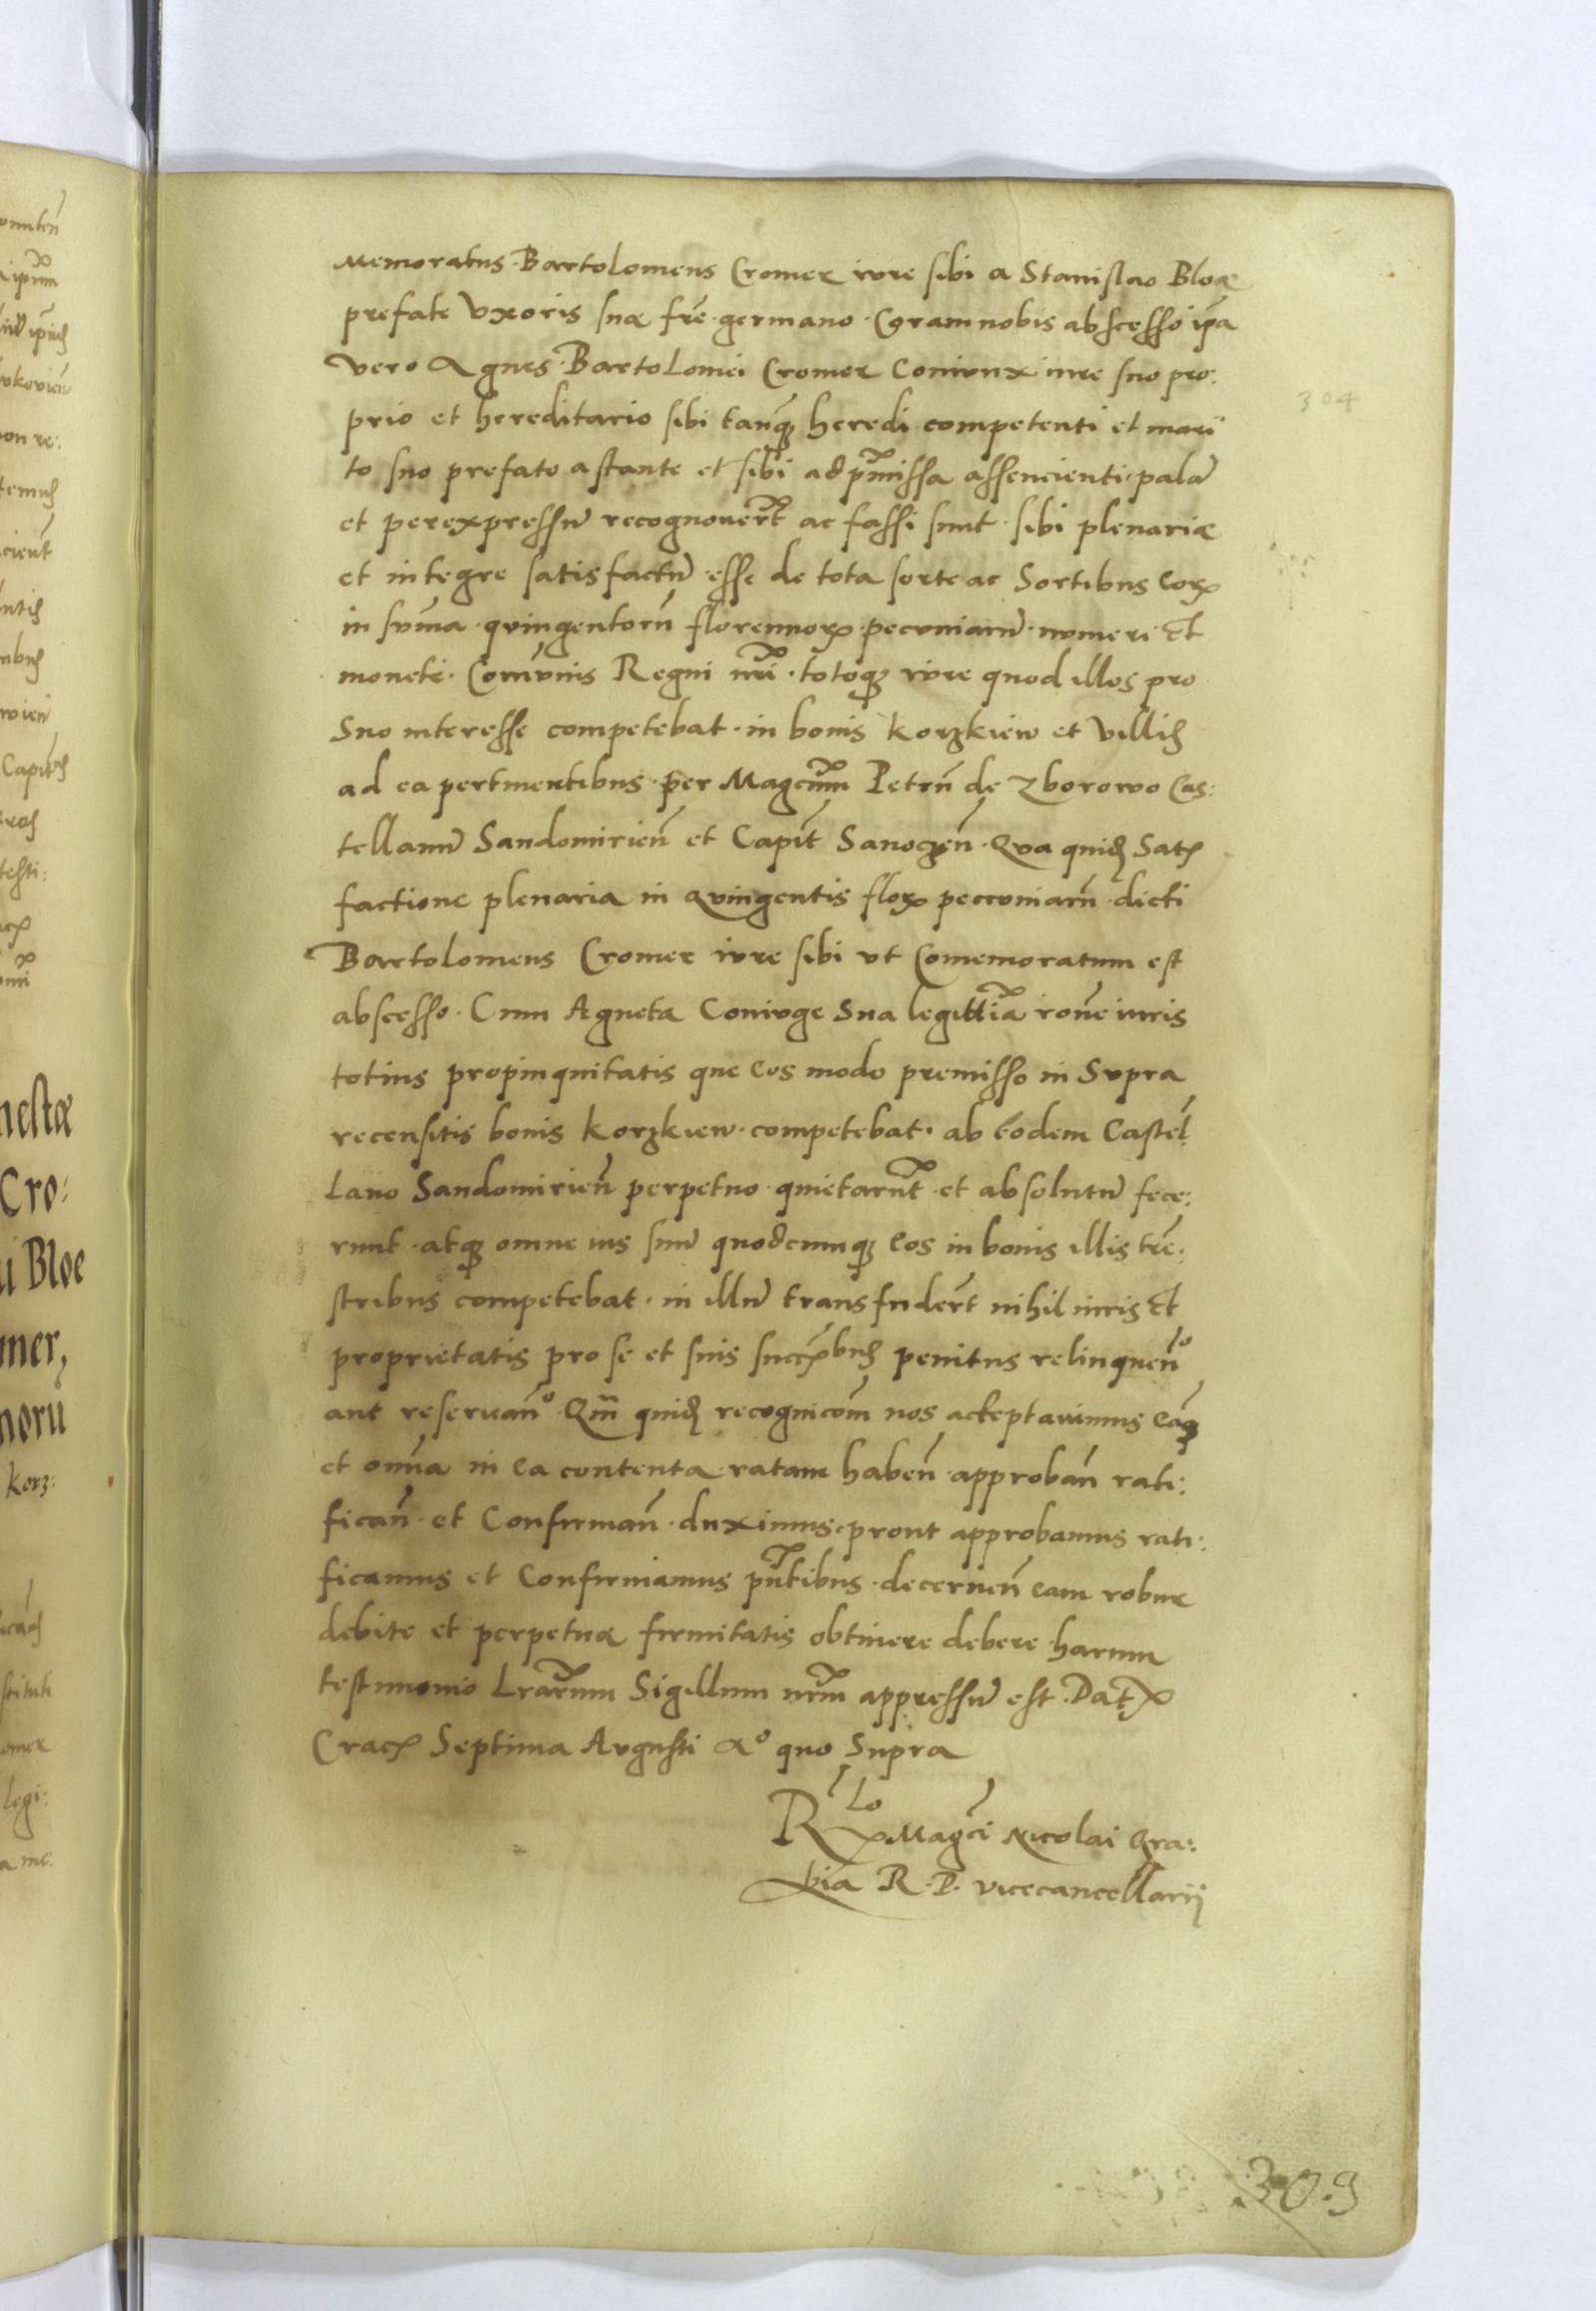 Memoratus Bartolomeus Cromer iure sibi a Stanislao Bloæ
prefate Uxoris suæ frẽ germano Coram nobis abscesso ip̃a
vero Agnes Bartolomei Cromer Coniunx iure suo pro:
prio et hereditario sibi tanq̃ heredi competenti et mari
to suo prefato astante et sibi ad p̃missa assencienti palã
et per expressũ recognouerũt ac fassi sunt sibi plenariæ
et integre satisfactũ esse de tota sorte ac Sortibus eorꝝ
in sum̃a quingentorũ florennorꝝ pecuniarũ numeri Et
moneti Com̃unis Regni nr̃i totoqꝫ iure quod illos pro
Suo interesse competebat in bonis Korzkiew et Villis
ad ea pertinentibus per Magcum̃ Petrũ de Zborowo Cas:
tellanũ Sandomirieñ et Capit̃ Sanoczeñ Qua quidẽ Satis
factione plenaria in Quingentis florꝝ peccuniarũ dicti
Bartolomeus Cromer iure sibi ut Comemoratum est
abscesso Cum Agneta Coniuge Sua legittĩa rõne iuris
totius propinquitatis que Eos modo premisso in Supra
recensitis bonis Korzkiew competebat ab Eodem Castel
Lano Sandomirieñ perpetuo quietarũt et absolutũ fece:
runt atqꝫ omne ius suũ quodcunqꝫ Eos in bonis illis tr̃e:
stribus competebat in illũ transfuderũt nihil iuris Et
proprietatis pro se et suis succ̃bus penitus relinqueñº
aut reseruañº Qm̃ quidẽ recognicom̃ nos acceptauimus Eamqꝫ
et om̃ia in Ea contenta ratam habeñ approbañ rati:
ficañ et Confirmañ duximus prout approbamus rati:
ficamus et Confirmamus p̃ntibus decerneñ eam robur
debite et perpetuæ firmitatis obtinere debere harum
testimonio Lr̃arum Sigillum nr̃m appressũ est Datꝝ
Cracꝝ Septima Augusti Aº quo Supra
Rlo Magci Nicolai Gra:
bia R. P. vicecancellarij
304
309
nestæ
Cro:
ui Bloe
mer,
noru
korz: